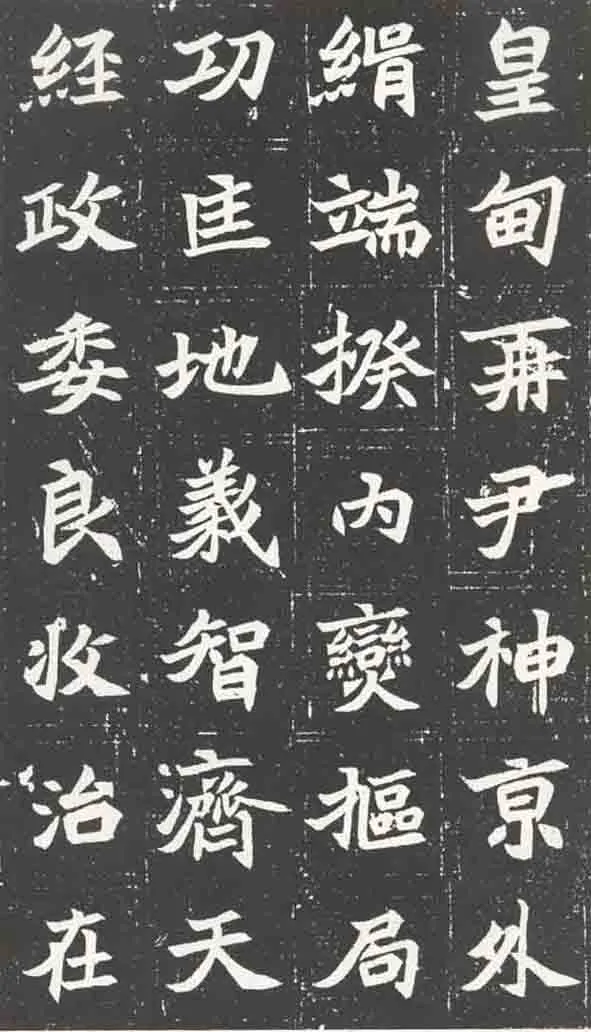 皇甸再尹神京外
緝端揆內爕摳局
功匡地義智濟天
経政委良收治在